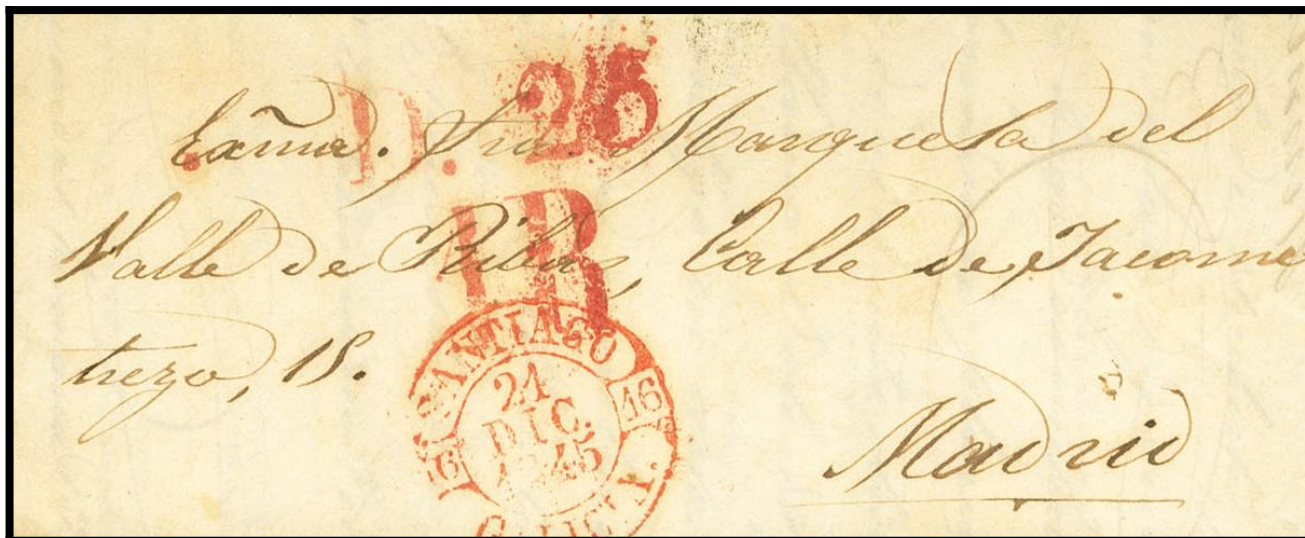 D. 25
Exma. Sra. Marquesa del
1R
Valle de Ribas, Calle de Jacome
trezo, 15.
Madrid
SANTIAGO
16 16
21
DIC.
1845
GALICIA.